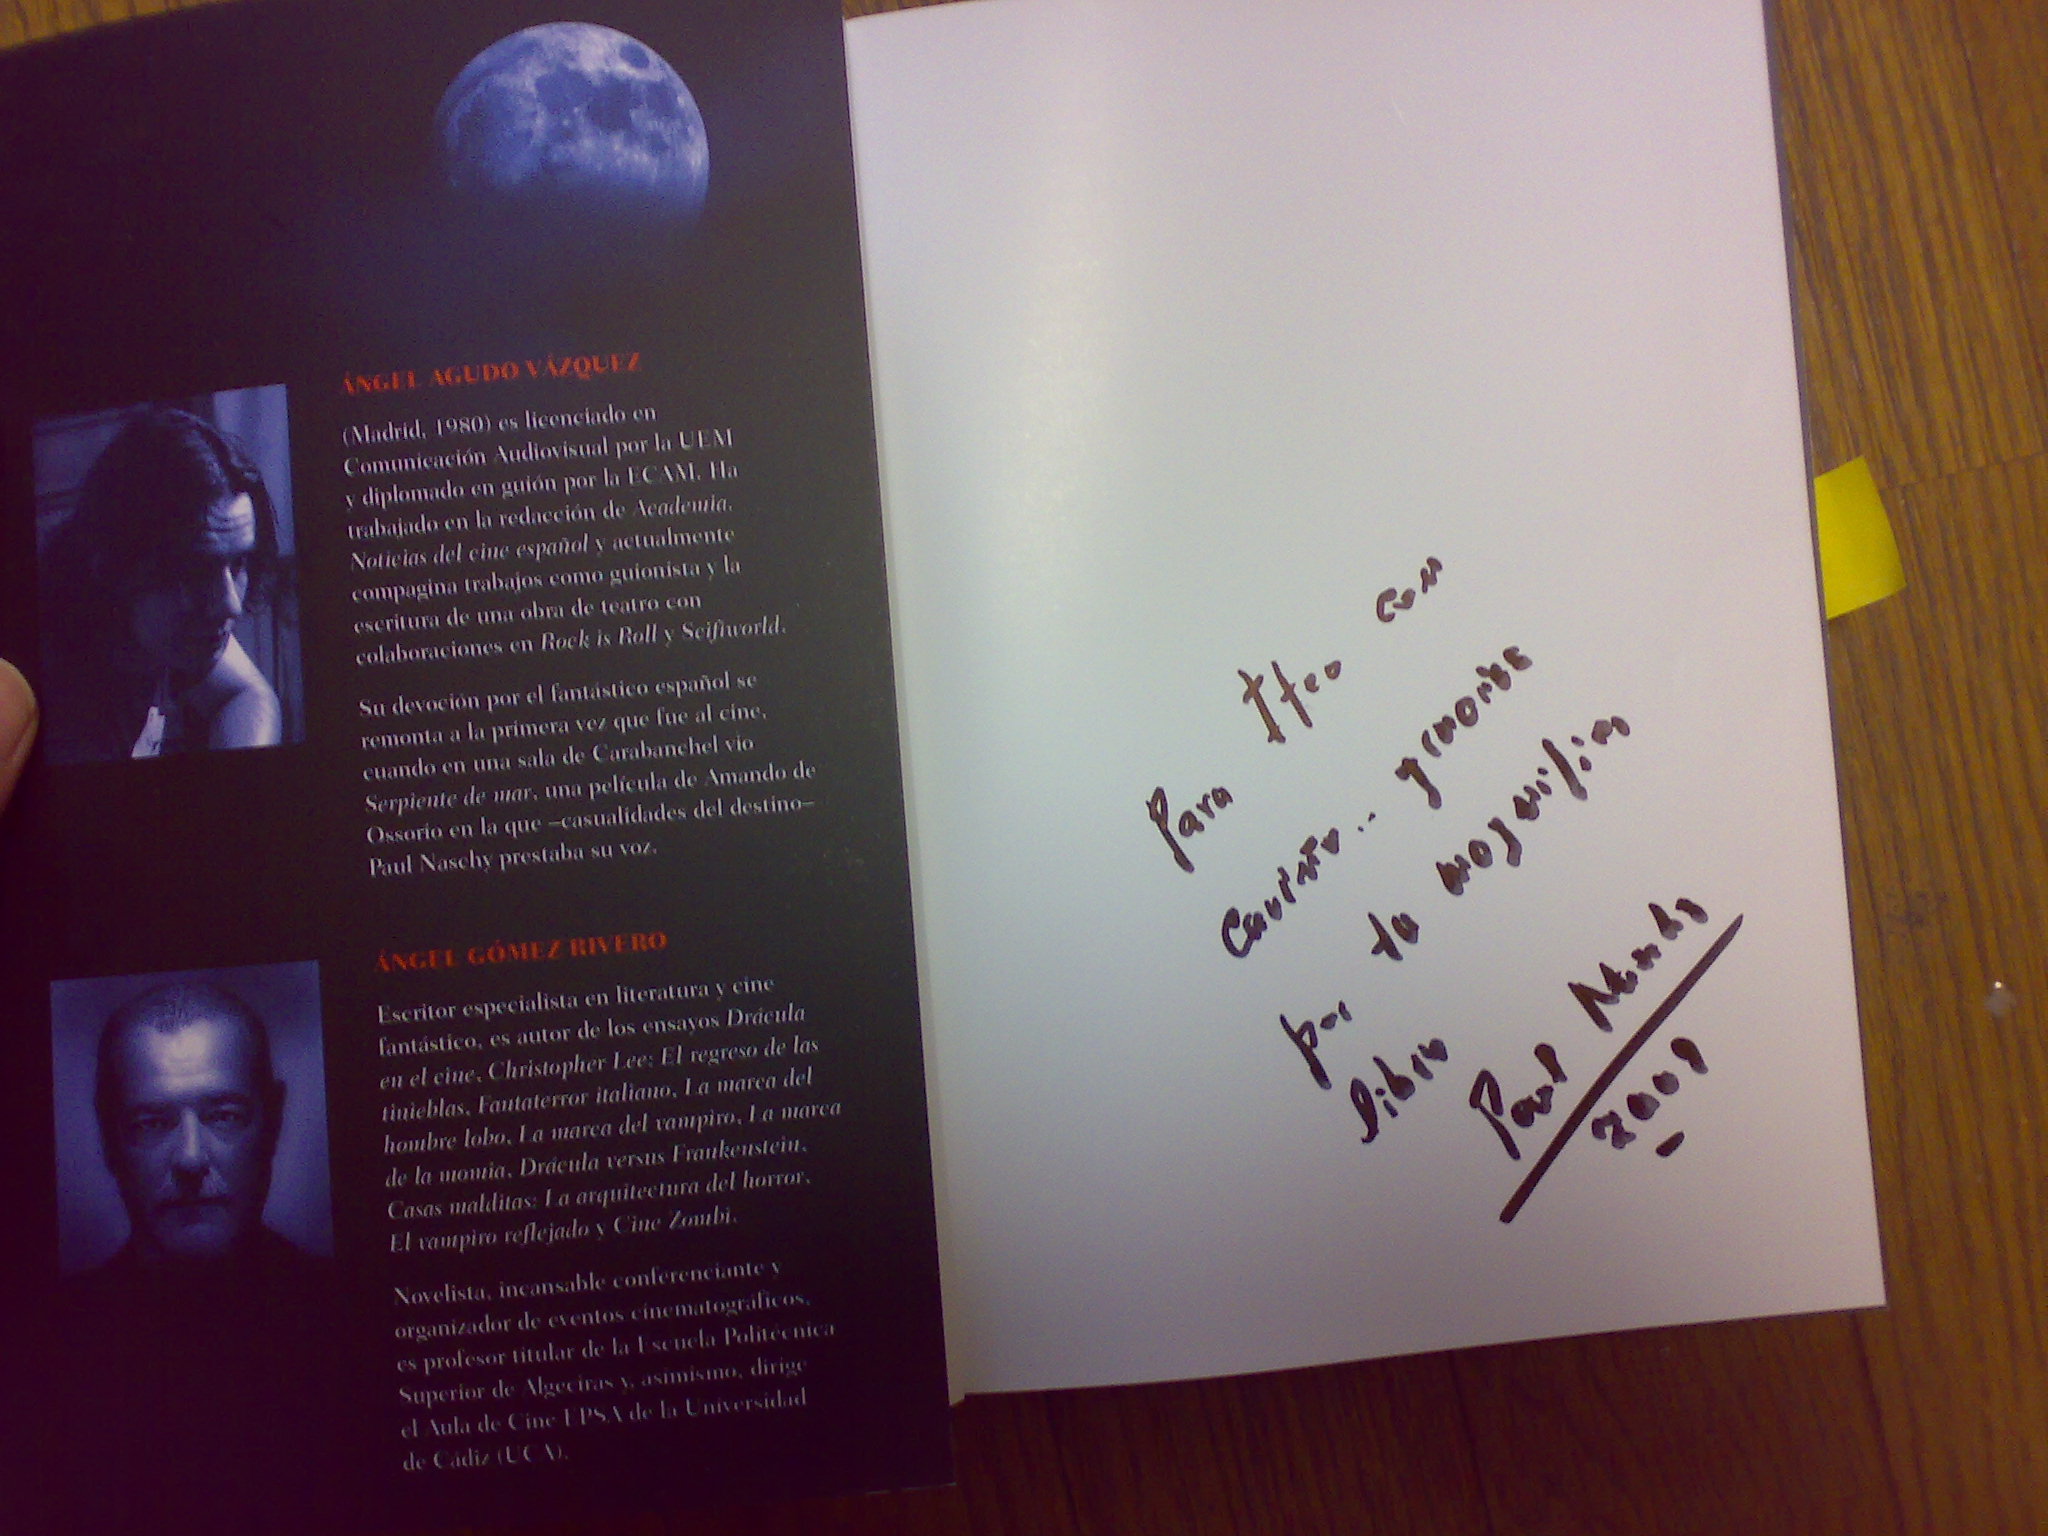 ÁNGEL AGUDO VÁZQUEZ
(Madrid, 1980) es licenciado en
Comunicación Audiovisual por la UEM
y diplomado en guión por la ECAM. Ha
trabajado en la redacción de Academia.
Noticias del cine español y actualmente
compagina trabajos como guionista y la
escritura de una obra de teatro con
colaboraciones en Rock is Roll y Scifiworld.
Su devoción por el fantástico español se
remonta a la primera vez que fue al cine,
cuando en una sala de Carabanchel vio
Serpiente de mar, una película de Amando de
Ossorio en la que –casualidades del destino–
Paul Naschy prestaba su voz.
ÁNGEL GÓMEZ RIVERO
Escritor especialista en literatura y cine
fantástico, es autor de los ensayos Drácula
en el cine, Christopher Lee: El regreso de las
tinieblas, Fantaterror italiano, La marca del
hombre lobo, La marca del vampiro, La marca
de la momia, Drácula versus Frankenstein,
Casas malditas: La arquitectura del horror,
El vampiro reflejado y Cine Zombi.
Novelista, incansable conferenciante y
organizador de eventos cinematográficos,
es profesor titular de la Escuela Politécnica
Superior de Algeciras y, asimismo, dirige
el Aula de Cine EPSA de la Universidad
de Cádiz (UCA).
Para con
Cariño..
por tu
libro
Paul